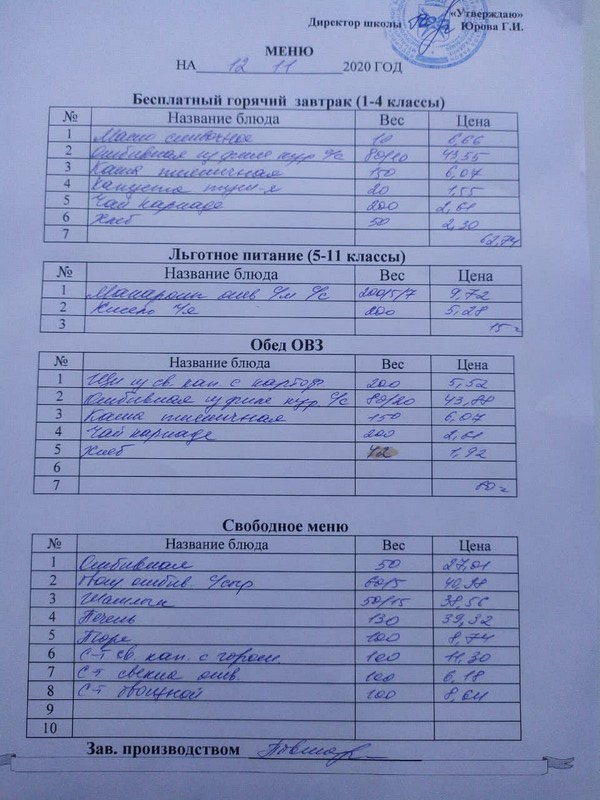 «Утверждаю»
Директор школы Юрова Г.И.
МЕНЮ
НА 12 11 2020 ГОД
Бесплатный горячий завтрак (1-4 классы)
№ Название блюда Вес Цена
1 Масло сливочное 10 6,66
2 Отбивная из филе кур с/с 80/20 43,55
3 Каша пшеничная 150 6,07
4 Капуста туш-я 20 1,55
5 Чай каркаде 200 2,61
6 Хлеб 50 2,30
7 62,74
Льготное питание (5-11 классы)
№ Название блюда Вес Цена
1 Макароны отв с/м с/с 200/5/7 9,72
2 Кисель 200 5,28
3 15 г
Обед ОВЗ
№ Название блюда Вес Цена
1 Щи из св. кап. с картоф 200 5,52
2 Отбивная из филе кур с/с 80/20 43,88
3 Каша пшеничная 150 6,07
4 Чай каркаде 200 2,61
5 Хлеб 42 1,92
6
7
Свободное меню
№ Название блюда Вес Цена
1 Отбивная 50 27,01
2 отбив. с/сыр 60/5 40,98
3 Шашлык 50/15 38,56
4 Печень 130 39,32
5 Пюре 100 8,74
6 С-т св. кап. с горош. 100 11,30
7 С-т свекла отв. 100 6,18
8 С-т овощной 100 8,04
9
10
Зав. производством